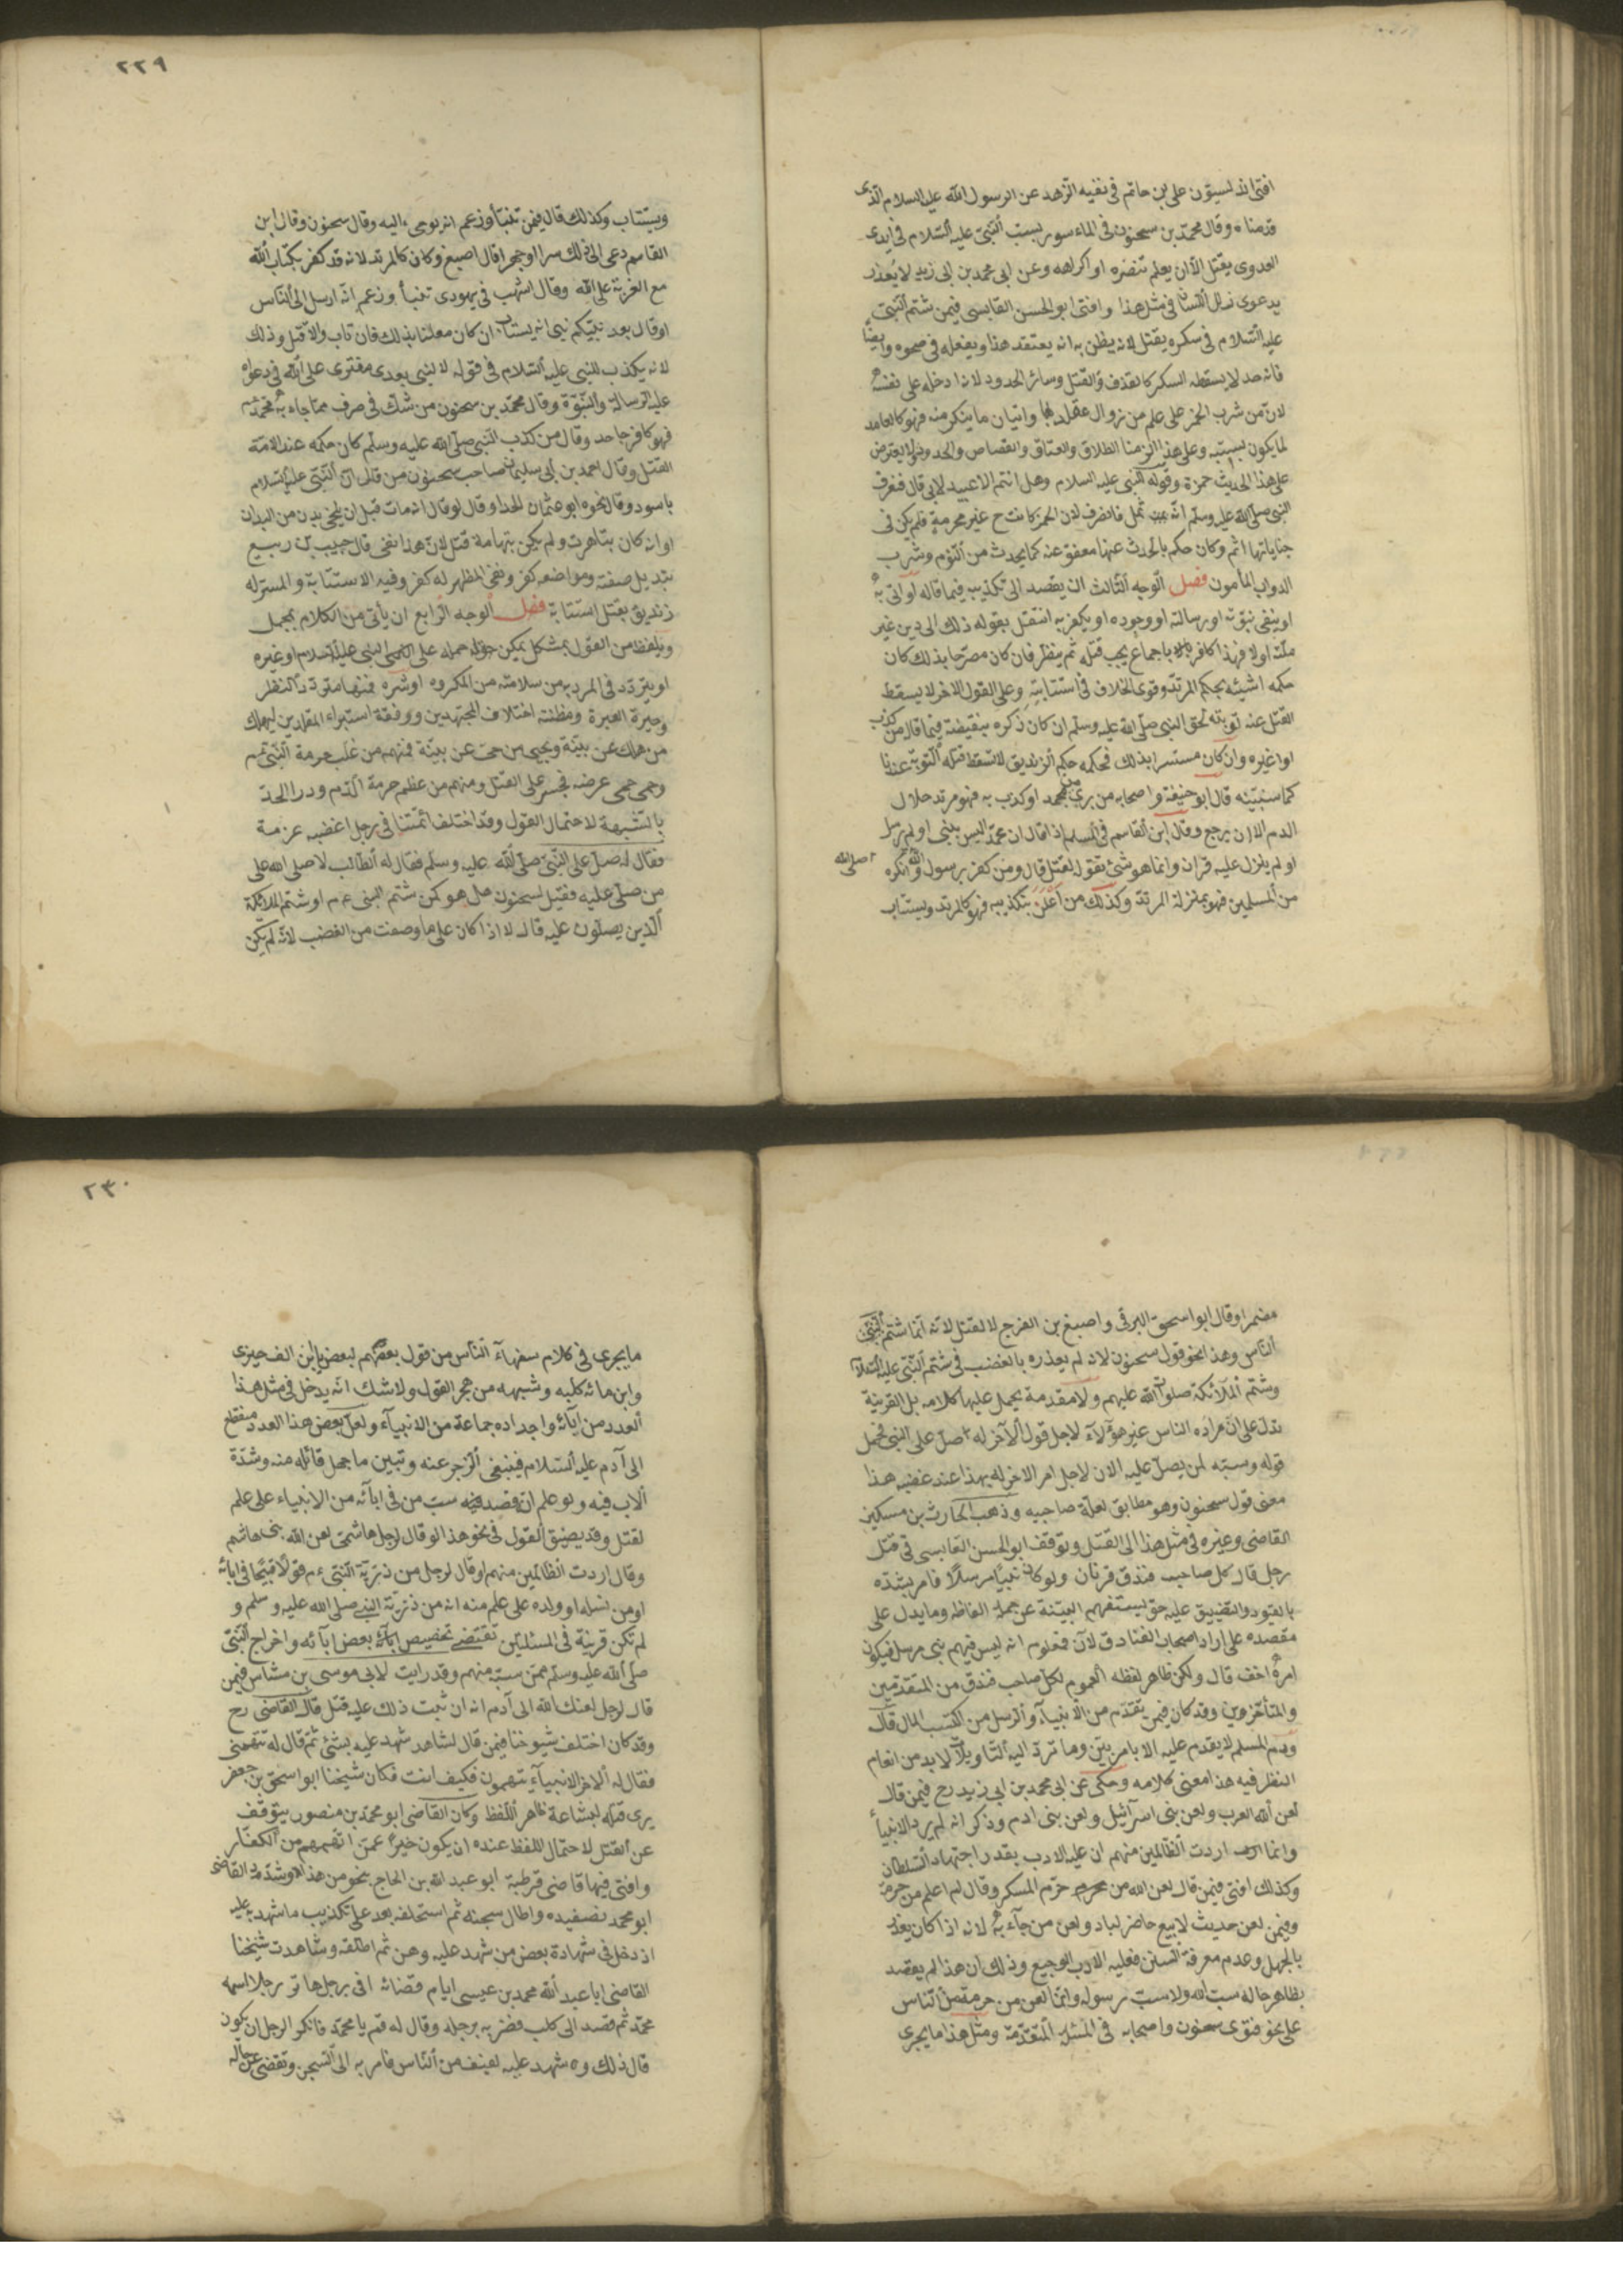 افتى اندلسيون على بن حاتم فى نفيه الزهد عن الرسول الله عليه السلام الذى
قدمناه وقال محمد بن سحنون فى الماء سور بسب النبى عليه السلام فى ايدى
العدوى يقتل الا ان يعلم تنضره او اكراهه وعن ابى محمد بن ابى زيد لا يعذر
بدعوى زلل اللسان فى مثل هذا وافتى ابو الحسن القابسى فيمن شتم النبى
عليه السلام فى سكره يقتل لانه يظن به انه يعتقد هذا ويفعله فى صحوه وايضا
فانه حد لا يسقطه السكر كالقذف والقتل وسائر الحدود لانه ادخله على نفسه
لان من شرب الخمر على علم من زوال عقله بها واتيان ما ينكر منه فهو كالعامد
لما يكون بسببه وعلى هذا الزمنا الطلاق والعتاق والقصاص والحدود ولا يعترض
على هذا الحديث حمزة وقوله النبى عليه السلام وهل انتم الا عبيد لابى قال فعرف
النبى صلى الله عليه وسلم انه ثمل فانصرف لان الخمر كانت ح غير محرمة فلم يكن فى
جناياتها اثم وكان حكم بالحدث عنها معفو عنه كما يحدث من النوم وشرب
الدواب المأمون فصل الوجه الثالث ان يقصد الى تكذيبه فيما قاله او اتى به
او ينفى نبوته او رسالته او وجوده او يكفر به انتقل بقوله ذلك الى دين غير
ملته او لا فهذا كافر باجماع يجب قتله ثم ينظر فان كان مصرحا بذلك كان
حكمه اشبه بحكم المرتد وقوى الخلاف فى استتابته وعلى القول الاخر لا يسقط
القتل عنه توبته لحق النبى صلى الله عليه وسلم ان كان ذكره بنقيضة فيما قال من كذب
او غيره وان كان مستسرا بذلك فحكمه حكم الزنديق لا تسقط قتله التوبة عندنا
كما سنبينه قال ابو حنيفة واصحابه من برئ من محمد او كذب به فهو مرتد حلال
الدم الا ان يرجع وقال ابن القاسم فى المسلم اذا قال ان محمد اليس بنبى او لم يرسل
او لم ينزل عليه قران وانما هو شئ تقوله يقتل قال ومن كفر برسول الله وانكره
صلى الله
من المسلمين فهو بمنزلة المرتد وكذلك من اعلن بتكذيبه فهو كالمرتد ويستتاب
٢٢٩
ويستتاب وكذلك قال فيمن تنبأ وزعم انه يوحى اليه وقال سحنون وقال ابن
القاسم دعى الى ذلك سرا او جهرا قال اصبغ وكان كالمرتد لانه قد كفر بكتاب الله
مع الفرية على الله وقال اشهب فى يهودى تنبأ وزعم انه ارسل الى الناس
او قال بعد نبيكم نبى انه يستتاب ان كان معلنا بذلك فان تاب والا قتل وذلك
لانه يكذب للنبى عليه السلام فى قوله لا نبى بعدى مفترى على الله فى دعواه
عليه الرسالة والنبوة وقال محمد بن سحنون من شك فى حرف مما جاء به محمد م
فهو كافر جاحد وقال من كذب النبى صلى الله عليه وسلم كان حكمه عند الامة
القتل وقال احمد بن ابى سليمان صاحب سحنون من قال ان النبى عليه السلام
باسود وقال نحوه ابو عثمان الحداد وقال لو قال انه مات قبل ان يلتحى
او انه كان بتاهرت ولم يكن بتهامة قتل لان هذا نفى قال حبيب بن ربيع
تبديل صفته ومواضعه كفر ونفى المظهر له كفر وفيه الاستتابة والمستر له
زنديق يقتل استتابة فصل الوجه الرابع ان يأتى من الكلام بمجمل
ويلفظ من القول بمشكل يمكن حمله على النبى عليه السلام او غيره
او يتردد فى المراد به من سلامته من المكروه او شره فههنا متردد النظر
وحيرة العبرة ومظنة اختلاف المجتهدين ووقفة استبراء المقلدين ليهلك
من هلك عن بينة ويحيى من حى عن بينة فمنهم من غلب حرمة النبى م
وحمى حمى عرضه فجسر على القتل ومنهم من عظم حرمة الدم ودرا الحد
بالشبهة لاحتمال القول وقد اختلف ائمتنا فى رجل اغضبه غرمة
فقال له صل على النبى صلى الله عليه وسلم فقال له الطالب لا صلى الله على
من صلى عليه فقيل لسحنون هل هو كمن شتم النبى ع م او شتم الملائكة
الذين يصلون عليه قال لا اذا كان على ما وصفت من الغضب لانه لم يكن
مضمرا وقال ابو اسحق البرقى واصبغ بن الفرج لا يقتل لانه انما شتم النبى
الناس وهذا نحو قول سحنون لانه لم يعذره بالغضب فى شتم النبى عليه السلام
وشتم الملائكة صلوات الله عليهم ولا مقدمة يحمل عليها كلامه بل القرينة
تدل على ان مراده الناس غير هؤلاء لاجل قول الآخر له صل على النبى فحمل
قوله وسبه لمن يصل عليه الان لاجل امر الاخر له بهذا عند غضبه هذا
معنى قول سحنون وهو مطابق لعلة صاحبيه وذهب الحارث بن مسكين
القاضى وغيره فى مثل هذا الى القتل وتوقف ابو الحسن القابسى فى قتل
رجل قال كل صاحب فندق قرنان ولو كان نبيا مرسلا فامر بشده
بالقيود والتضييق عليه حتى يستفهم البينة عن جملة الفاظه وما يدل على
مقصده على اراد اصحاب الفنادق لآن فمعلوم انه ليس فيهم نبى مرسل فيكون
امره اخف قال ولكن ظاهر لفظه العموم لكل صاحب فندق من المتقدمين
والمتأخرين وقد كان فيمن تقدم من الانبياء والرسل من اكتسب المال قال
ودم المسلم لا يقدم عليه الا بامر بين وما ترد اليه التأويلا لا بد من انعام
النظر فيه هذا معنى كلامه وحكى عن ابى محمد بن ابى زيد رح فيمن قال
لعن الله العرب ولعن بنى اسرائيل ولعن بنى ادم وذكر انه لم يرد الانبياء
وانما اردت الظالمين منهم ان عليه الادب بقدر اجتهاد السلطان
وكذلك افتى فيمن قال لعن الله من حرم المسكر وقال لم اعلم من حرمه
وفيمن لعن حديث لا يبيع حاضر لباد ولعن من جآء به لانه اذا كان يعذر
بالجهل وعدم معرفة السنن فعليه الادب الوجيع وذلك ان هذا لم يقصد
بظاهر حاله سب الله ولا سب رسوله وانما لعن من حرمه من الناس
على نحو فتوى سحنون واصحابه فى المسئلة المتقدمة ومثل هذا ما يجرى
٢٣٠
ما يجرى فى كلام سفهآء الناس من قول بعضهم لبعض يا ابن الف خنزى
وابن مائة كلبه وشبهه من هجر القول ولا شك انه يدخل فى مثل هذا
العدد من آبائه واجداده جماعة من الانبيآء ولعل بعض هذا العدد منقطع
الى آدم عليه السلام فينبغى الزجر عنه وتبين ما جهل قائله منه وشدة
الاب فيه ولو علم انه قصد سب من فى ابآئه من الانبياء على علم
لقتل وقد يضيق القول فى نحو هذا لو قال لرجل هاشمى لعن الله بنى هاشم
وقال اردت الظالمين منهم او قال لرجل من ذرية النبى ع م قولا قبيحا فى ابائه
او من نسله او ولده على علم منه انه من ذرية النبى صلى الله عليه وسلم و
لم تكن قرينة فى المسئلتين تقتضى تخصيص بعض ابآئه واخراج النبى
صلى الله عليه وسلم ممن سبه منهم وقد رايت لابى موسى بن مشاس فيمن
قال لرجل لعنك الله الى آدم انه ان ثبت ذلك عليه قتل قال القاضى رح
وقد كان اختلف شيوخنا فيمن قال لشاهد شهد عليه بشئ ثم قال له تتهمنى
فقال له الاخر الانبيآء يتهمون فكيف انت فكان شيخنا ابو اسحق بن جعفر
يرى قتله لبشاعة ظاهر اللفظ وكان القاضى ابو محمد بن منصور يتوقف
عن القتل لاحتمال اللفظ عنده ان يكون خبرا عمن اتهمهم من الكفار
وافتى فيها قاضى قرطبة ابو عبد الله بن الحاج بنحو من هذا وشدد القاضى
ابو محمد تصفيده واطال سجنه ثم استحلفه بعد على تكذيب ما شهد به عليه
اذ دخل فى شهادة بعض من شهد عليه وهن ثم اطلقه وشاهدت شيخنا
القاضى ابا عبد الله محمد بن عيسى ايام قضائه اتى برجل هاتر رجلا اسمه
محمد ثم قصد الى كلب فضربه برجله وقال له قم يا محمد فانكر الرجل ان يكون
قال ذلك وه شهد عليه لفيف من الناس فامر به الى السجن وتقصى عن حاله